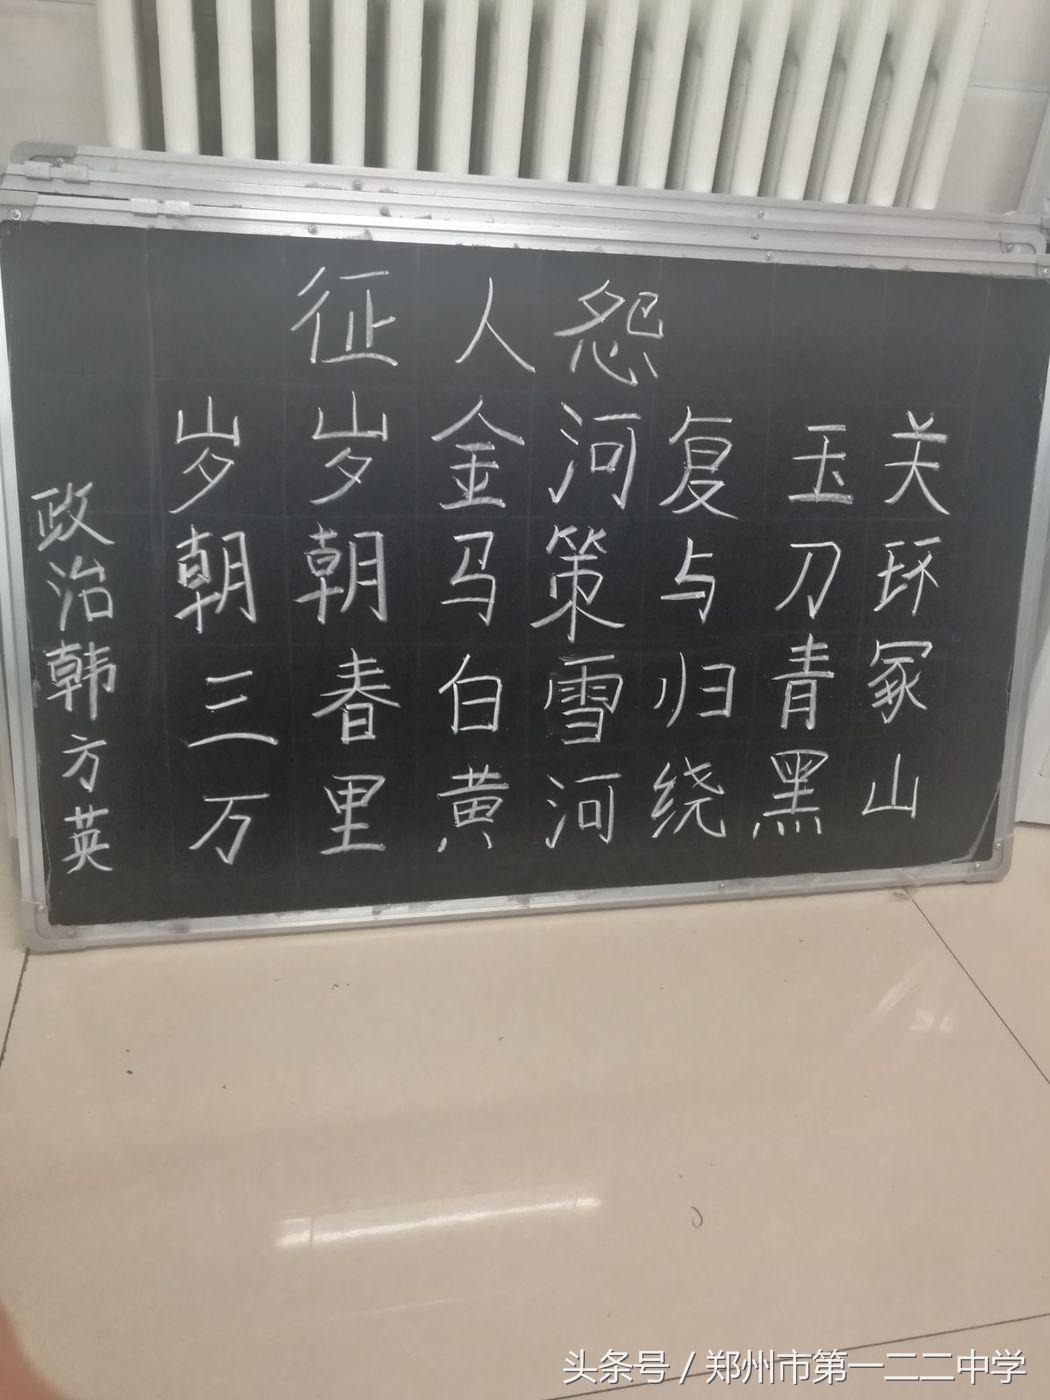 征人怨
岁岁金河复玉关
朝朝马策与刀环
三春白雪归青冢
万里黄河绕黑山
政治韩方英
头条号 / 郑州市第一二二中学